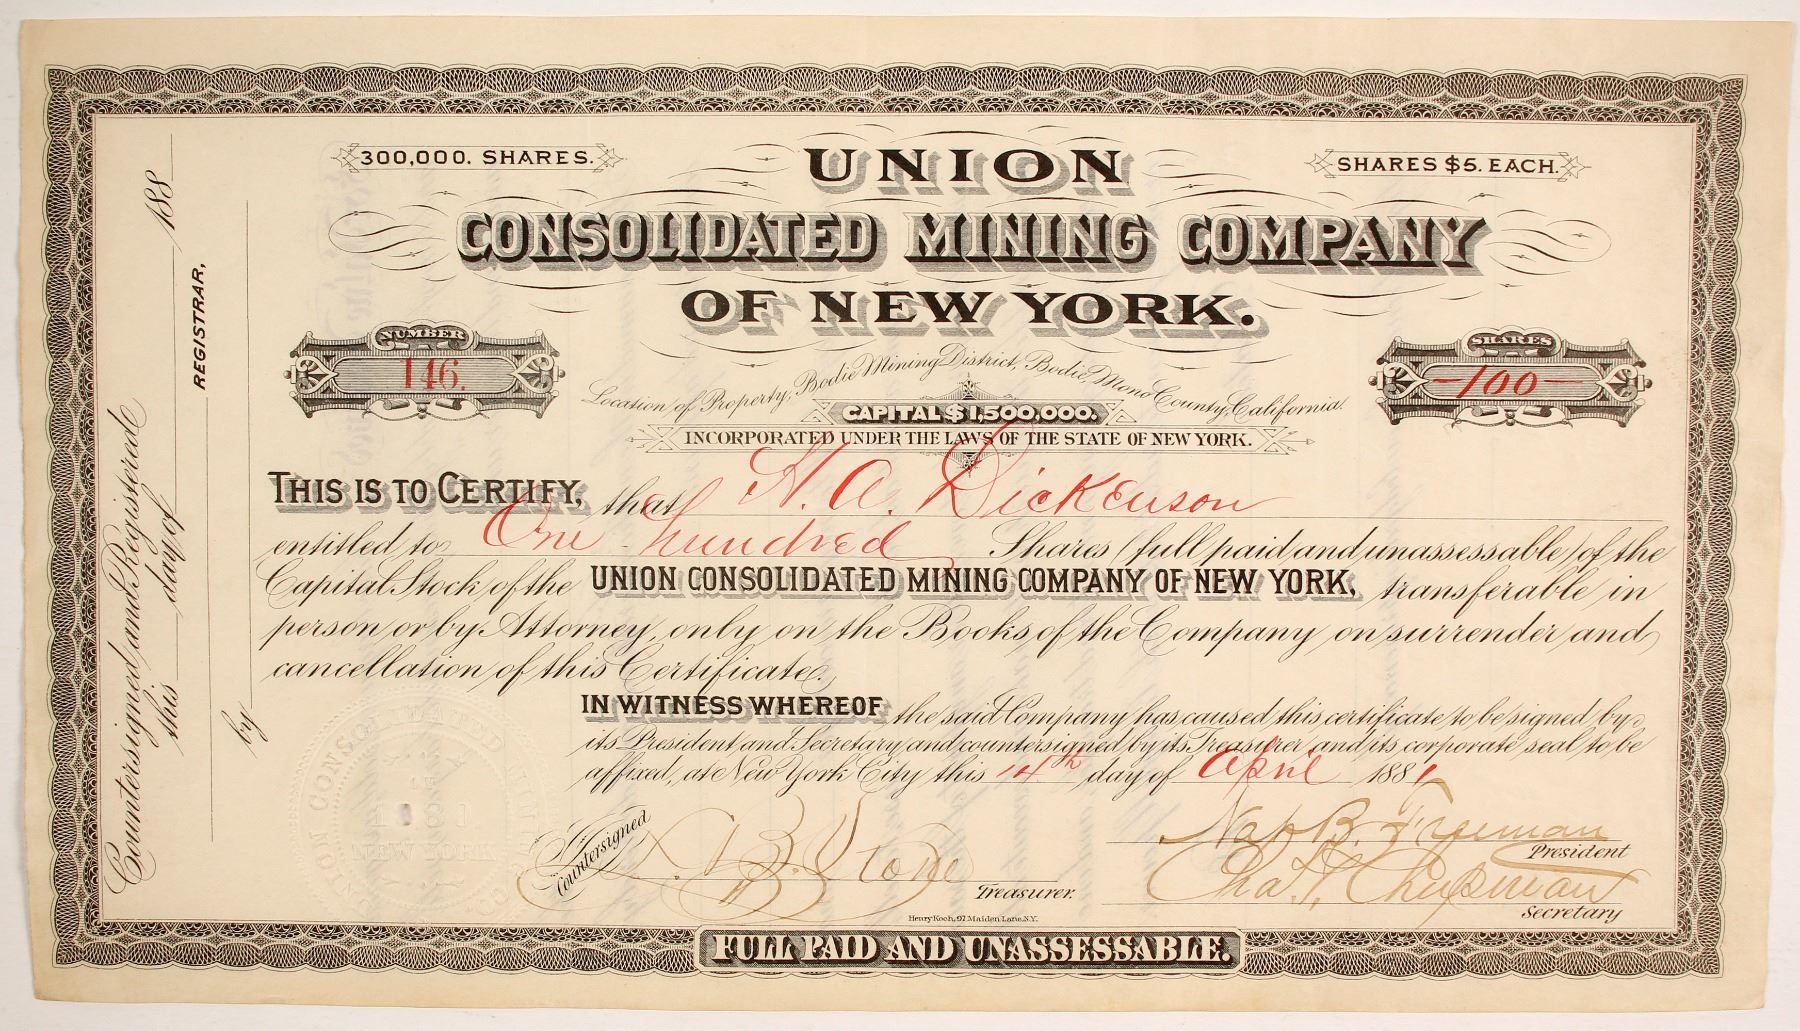 300,000. SHARES.
UNION
SHARES $5. EACH.
CONSOLIDATED MINING COMPANY
OF NEW YORK.
NUMBER
146.
SHARES
—100—
Location of Property, Bodie Mining District, Bodie, Mono County, California.
CAPITAL $1,500,000.
INCORPORATED UNDER THE LAWS OF THE STATE OF NEW YORK.
THIS IS TO CERTIFY, that H. A. Dickenson
entitled to One hundred Shares (full paid and unassessable) of the
Capital Stock of the UNION CONSOLIDATED MINING COMPANY OF NEW YORK, transferable in
person or by Attorney, only on the Books of the Company on surrender and
cancellation of this Certificate.
IN WITNESS WHEREOF, the said Company has caused this certificate to be signed by
its President and Secretary and countersigned by its Treasurer and its corporate seal to be
affixed, at New York City this 14th day of April 1881
Nap B. Freeman
President
Countersigned
Treasurer.
Chas. Chapman
Secretary
Henry Koch, 97 Maiden Lane, N.Y.
FULL PAID AND UNASSESSABLE.
Countersigned and Registered
this day of 188
REGISTRAR,
by
CONSOLIDATED
OF
1881
NEW YORK